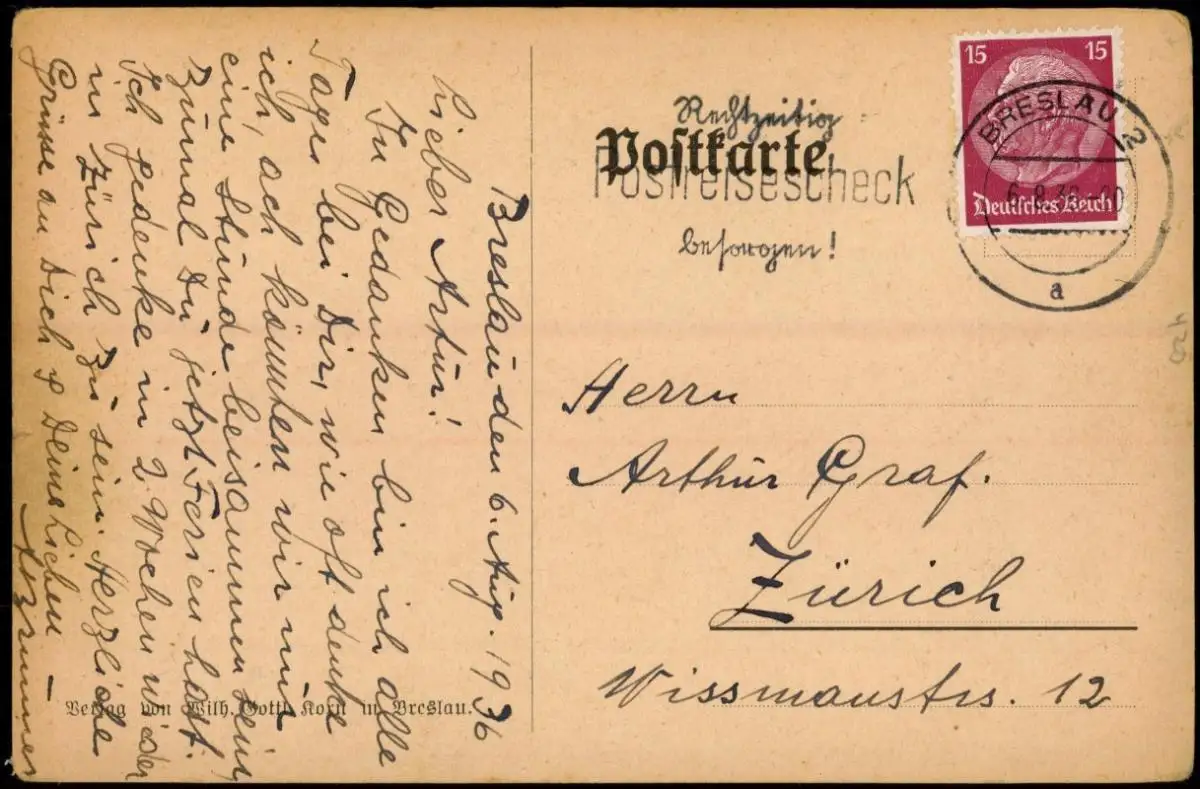 Breslau den 6. Aug. 1936
Lieber Artur!
In Gedanken bin ich alle
Tage bei Dir, wie oft denke
ich, ach könnten wir nur
eine Stunde beisammen sein,
zumal Du jetzt Ferien hast.
Ich gedenke in 2 Wochen wieder
in Zürich zu sein. Herzliche
Grüsse an Dich & Deine Lieben
Verlag von Wilh. Gottl. Korn in Breslau.
Rechtzeitig
Postkarte
Postreisescheck
besorgen!
15 15
Deutsches Reich
BRESLAU 2
a
Herrn
Arthur Graf.
Zürich
Wissmannstrs. 12